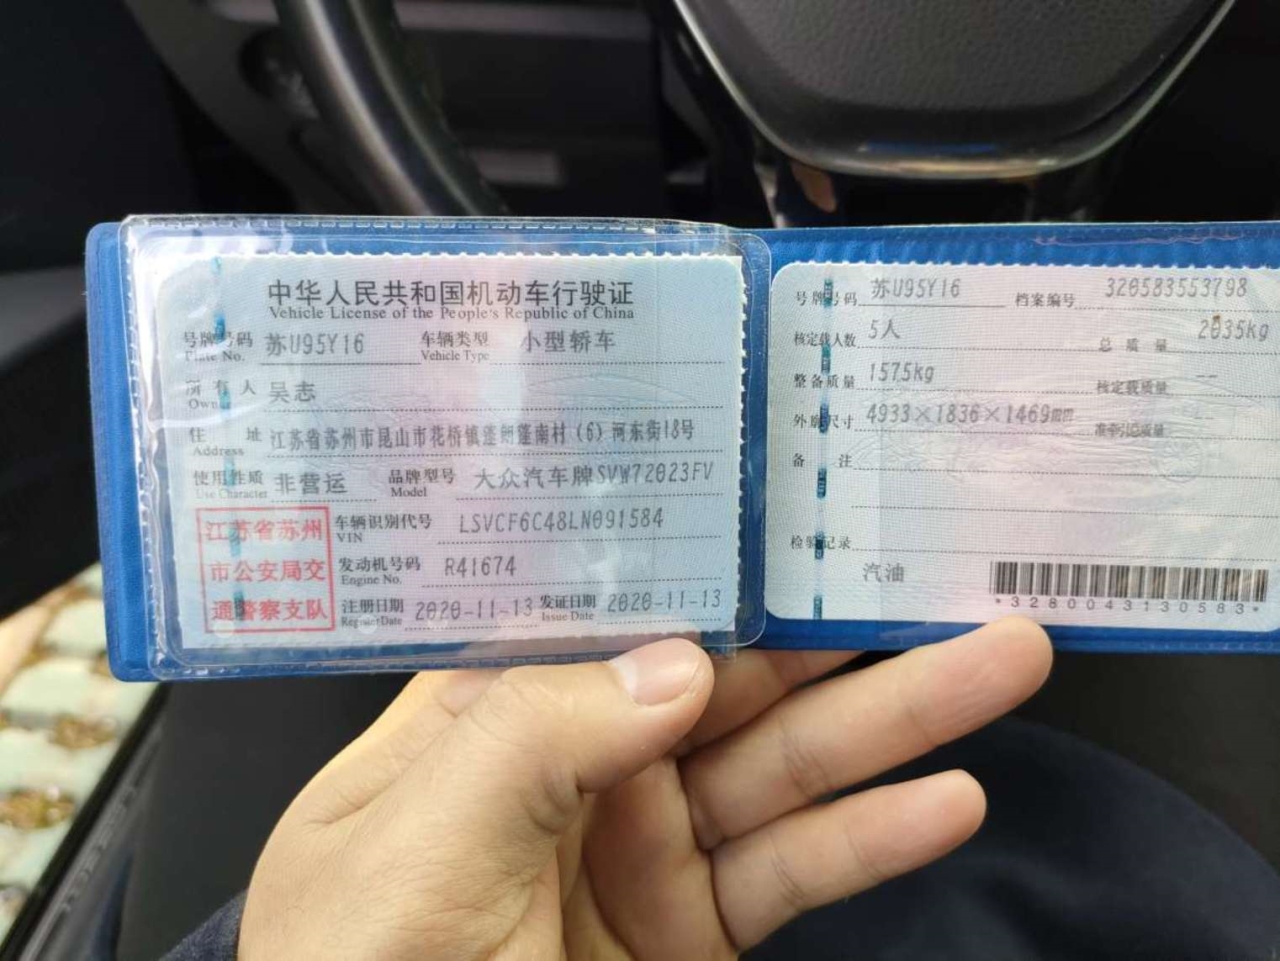 中华人民共和国机动车行驶证
Vehicle License of the People's Republic of China
号牌号码 苏U95Y16 车辆类型 小型轿车
Plate No. Vehicle Type
所有人 吴志
Owner
住址 江苏省苏州市昆山市花桥镇蓬朗蓬南村(6)河东街18号
Address
使用性质 非营运 品牌型号 大众汽车牌SVW72023FV
Use Character Model
江苏省苏州
市公安局交
通警察支队
车辆识别代号 LSVCF6C48LN091584
VIN
发动机号码 R41674
Engine No.
注册日期 2020-11-13 发证日期 2020-11-13
Register Date Issue Date
号牌号码 苏U95Y16 档案编号 320583553798
核定载人数 5人 总质量 2035kg
整备质量 1575kg 核定载质量 --
外廓尺寸 4933×1836×1469mm 准牵引总质量 --
备注
检验记录
汽油
*3280043130583*